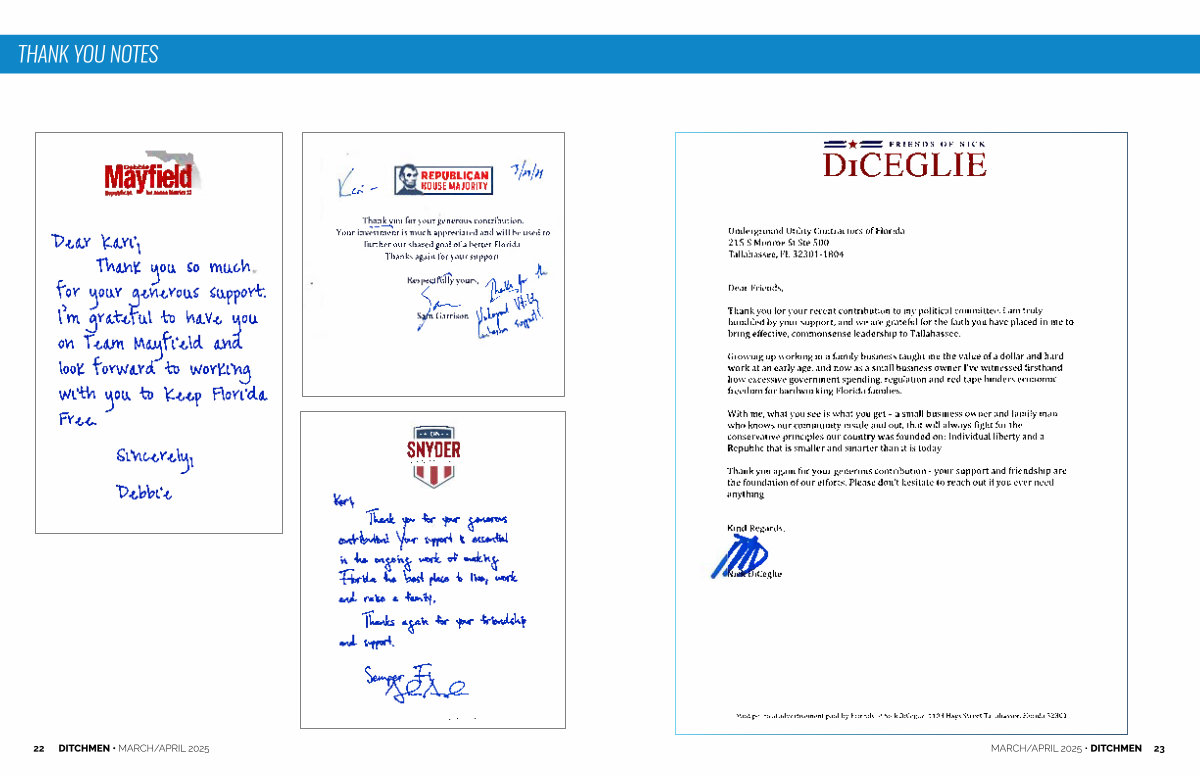 THANK YOU NOTES
Mayfield
Dear Kari,
Thank you so much
for your generous support.
I'm grateful to have you
on Team Mayfield and
look forward to working
with you to keep Florida
Free
Sincerely,
Debbie
Kari -
REPUBLICAN
HOUSE MAJORITY
Thank you for your generous contribution.
Your investment is much appreciated and will be used to
further our shared goal of a better Florida
Thanks again for your support
Respectfully yours,
Sam
Sam Garrison
Thanks for the
SNYDER
Kari,
Thank you for your generous
contribution! Your support is essential
in the ongoing work of making
Florida the best place to live, work
and raise a family.
Thanks again for your friendship
and support.
Semper Fi,
FRIENDS OF NICK
DICEGLIE
Underground Utility Contractors of Florida
215 S Monroe St Ste 500
Tallahassee, FL 32301-1804
Dear Friends,
Thank you for your recent contribution to my political committee. I am truly
humbled by your support, and we are grateful for the faith you have placed in me to
bring effective, commonsense leadership to Tallahassee.
Growing up working in a family business taught me the value of a dollar and hard
work at an early age, and now as a small business owner I've witnessed firsthand
how excessive government spending, regulation and red tape hinders economic
freedom for hardworking Florida families.
With me, what you see is what you get - a small business owner and family man
who knows our community inside and out, that will always fight for the
conservative principles our country was founded on: Individual liberty and a
Republic that is smaller and smarter than it is today
Thank you again for your generous contribution - your support and friendship are
the foundation of our efforts. Please don't hesitate to reach out if you ever need
anything
Kind Regards,
Nick DiCeglie
22 DITCHMEN • MARCH/APRIL 2025
MARCH/APRIL 2025 • DITCHMEN 23